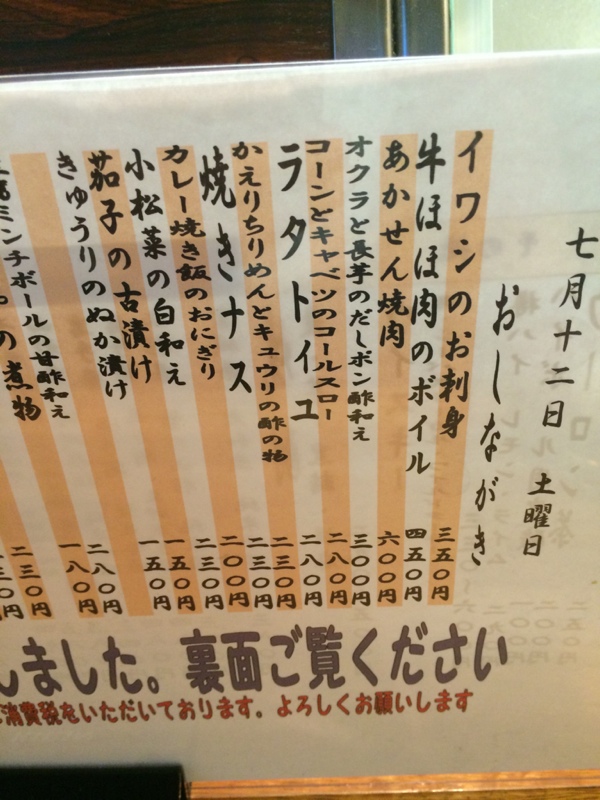 七月十二日 土曜日
おしながき
イワシのお刺身
牛ほほ肉のボイル
あかせん焼肉
オクラと長芋のだしポン酢和え
コーンとキャベツのコールスロー
ラタトイユ
かえりちりめんとキュウリの酢の物
焼きナス
カレー焼き飯のおにぎり
小松菜の白和え
茄子の古漬け
きゅうりのぬか漬け
ミンチボールの甘酢和え
の煮物
三五〇円
四五〇円
六〇〇円
三〇〇円
二八〇円
二八〇円
二三〇円
二三〇円
二〇〇円
二三〇円
一五〇円
一五〇円
二八〇円
一八〇円
二三〇円
三〇円
しました。裏面ご覧ください
消費税をいただいております。よろしくお願いします